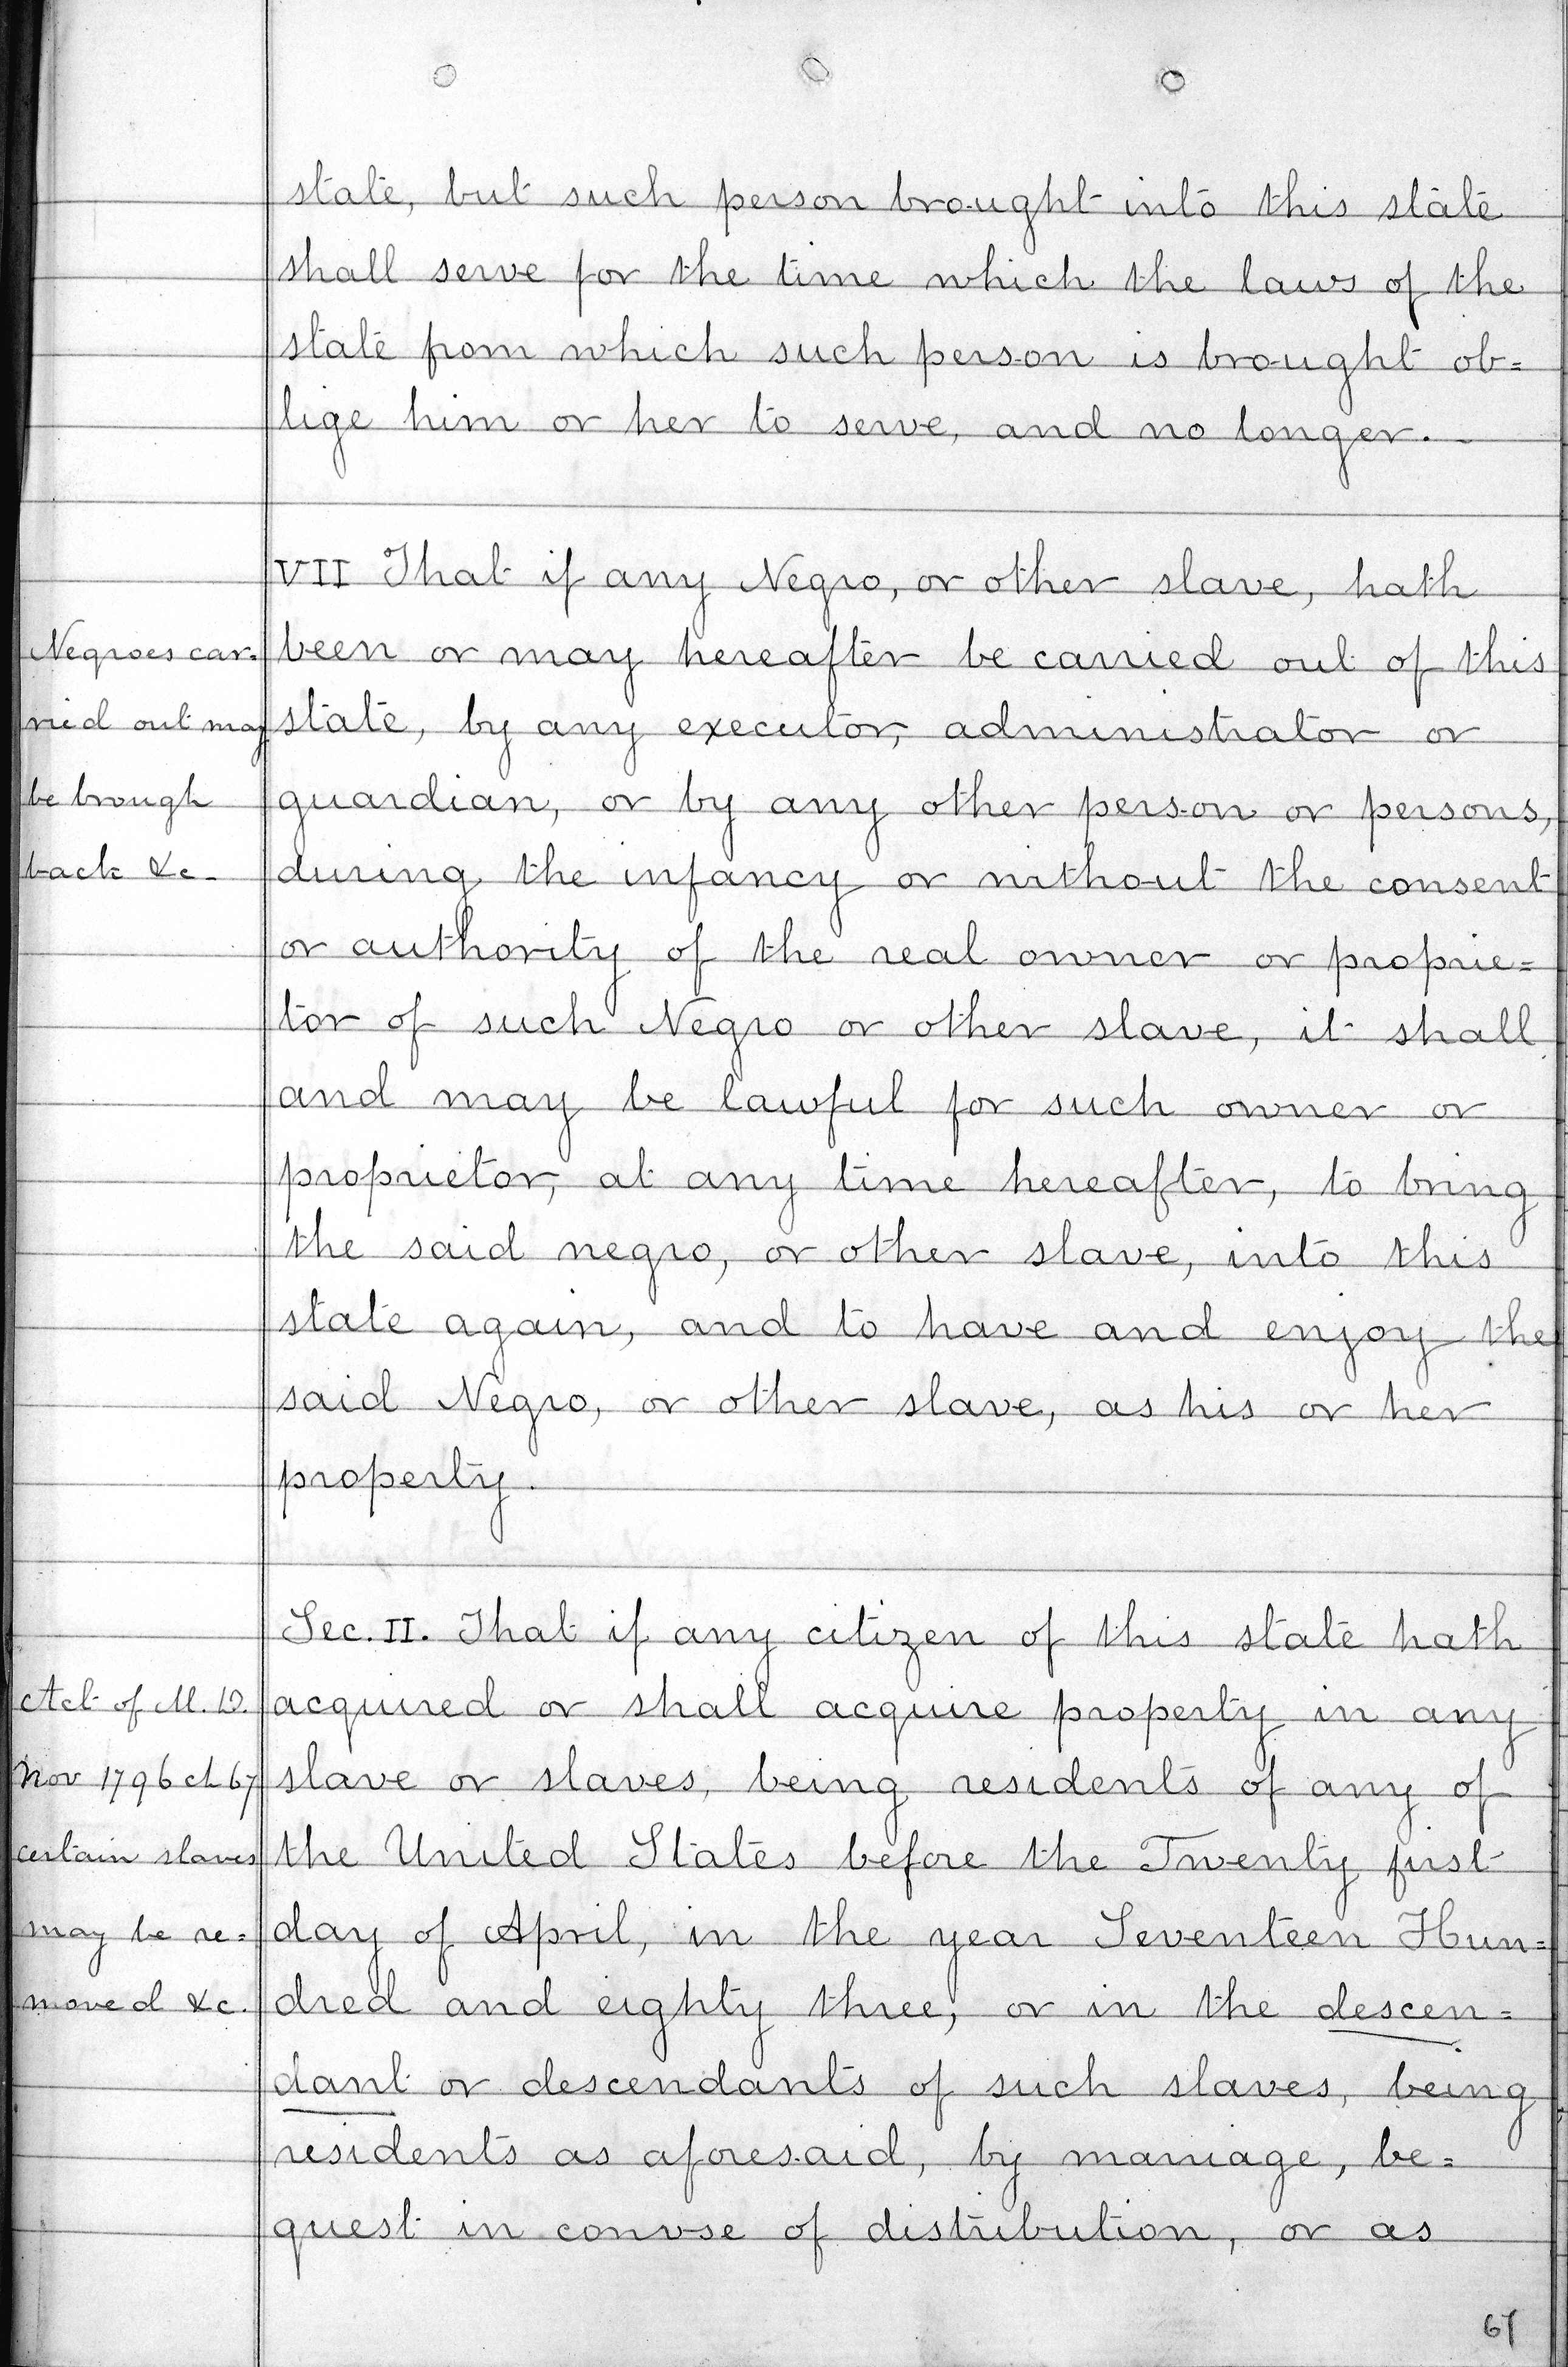 state, but such person brought into this state
shall serve for the time which the laws of the
state from which such person is brought ob=
lige him or her to serve, and no longer. -
VII That if any Negro, or other slave, hath
Negroes car-
been or may hereafter be carried out of this
ried out may
state, by any executor, administrator or
be brough
guardian, or by any other person or persons,
back &c -
during the infancy or without the consent
or authority of the real owner or proprie=
tor of such Negro or other slave, it shall
and may be lawful for such owner or
proprietor, at any time hereafter, to bring
the said negro, or other slave, into this
state again, and to have and enjoy the
said Negro, or other slave, as his or her
property.
Sec. II. That if any citizen of this state hath
Act of M. D.
acquired or shall acquire property in any
Nov 1796 ch 67
slave or slaves, being residents of any of
certain slaves
the United States before the Twenty first
may be re=
day of April, in the year Seventeen Hun=
moved &c.
dred and eighty three; or in the descen=
dant or descendants of such slaves, being
residents as aforesaid, by marriage, be=
quest in convse of distribution, or as
67